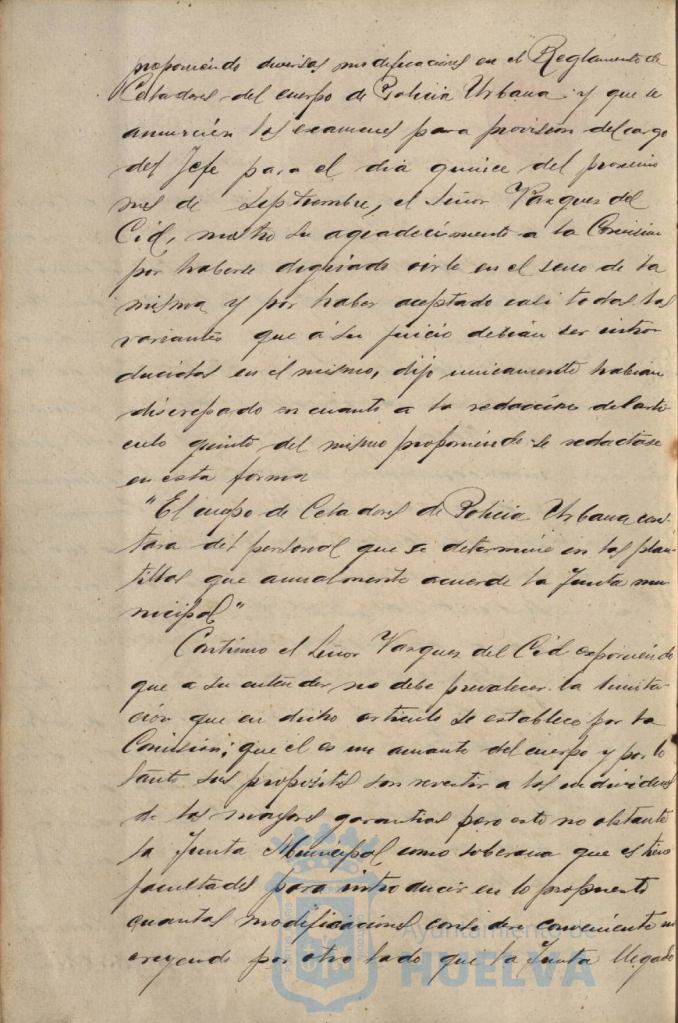 proponiendo diversas modificaciones en el Reglamento de
Celadores del cuerpo de Policia Urbana y que se
anuncien los examenes para provision del cargo
del Jefe para el dia quince del proximo
mes de Septiembre, el Señor Vazquez del
Cid, mostro su agradecimiento a la Comision
por haberse dignado oirle en el seno de la
misma y por haber aceptado casi todas las
variantes que a su juicio debian ser intro
ducidas en el mismo, dijo unicamente habian
discrepado en cuanto a la redaccion del arti
culo quinto del mismo proponiendo se redactase
en esta forma
"El cuerpo de Celadores de Policia Urbana cons
tara del personal que se determine en las plan
tillas que anualmente acuerde la Junta mu
nicipal"
Continuo el Señor Vazquez del Cid exponiendo
que a su entender no debe prevalecer la limita
cion que en dicho articulo se establece por la
Comision; que el es un amante del cuerpo y por lo
tanto sus propositos son revestir a los individuos
de las mayores garantias pero esto no obstante
la Junta Municipal como soberana que es tiene
facultades para introducir en lo propuesto
cuantas modificaciones considere conveniente no
creyendo por otro lado que la Junta llegado
Ayuntamiento de
HUELVA